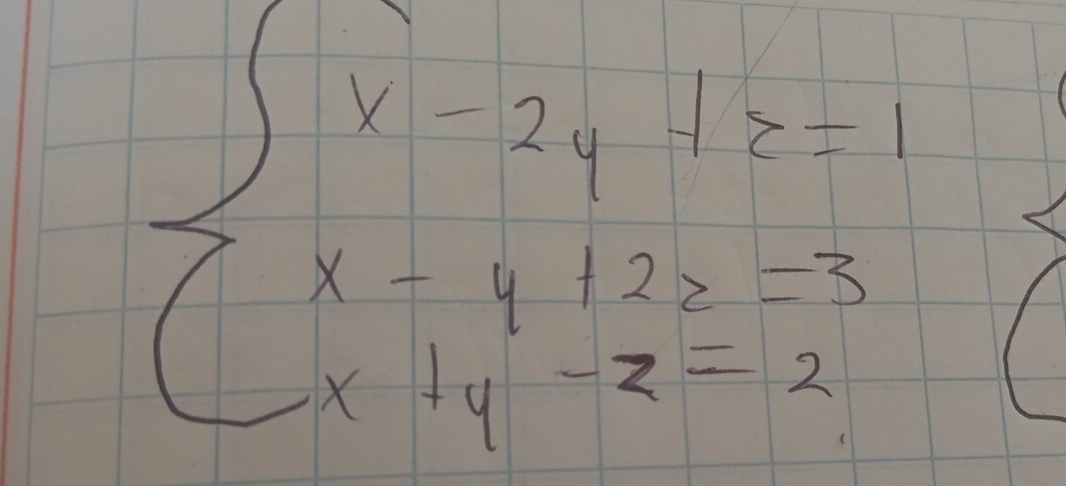 x - 2y + z = 1
x - y + 2z = 3
x + y - z = 2